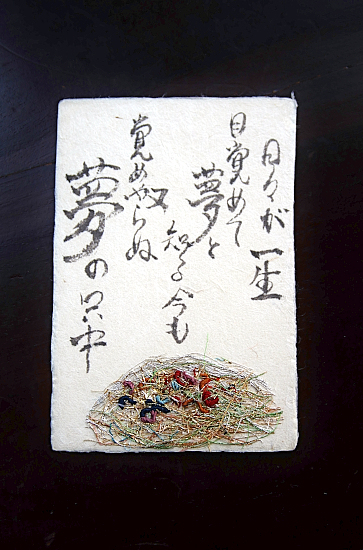 日々が一生
目覚めて
夢と
知る今も
覚めやらぬ
夢の只中